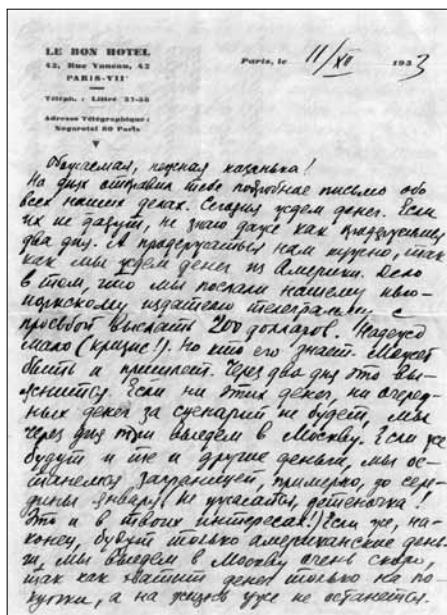 LE BON HOTEL
42, Rue Vaneau, 42
PARIS-VIIᵉ
Téléph. : Littré 27-58
Adresse Télégraphique :
Nogarotal 80 Paris
Paris, le 11/XII 1933
Обожаемая, нежная
На днях отправил тебе подробное письмо обо
всех наших делах. Сегодня ждем денег. Если
их не дадут, не знаю даже как продержимся
два дня. А продержаться нам нужно, так
как мы ждем денег из Америки. Дело
в том, что мы послали нашему нью-
йоркскому издателю телеграмму с
просьбой выслать 200 долларов. Надежд
мало (кризис!). Но кто его знает. Может
быть и пришлет. Через два дня это вы-
яснится. Если ни этих денег, ни очеред-
ных денег за сценарий не будет, мы
через дня три выедем в Москву. Если же
будут и те и другие деньги, мы ос-
танемся заграницей, примерно, до сере-
дины января. (Не ужасайся, детеночка!
Это и в твоих интересах!) Если же, на-
конец, будут только американские день-
ги, мы выедем в Москву очень скоро,
так как хватит денег только на по-
купки, а на жизнь уже не останется.